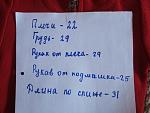 Плечи - 22
Грудь - 29
Рукав от плеча - 29
Рукав от подмышка - 25
Длина по спине - 31